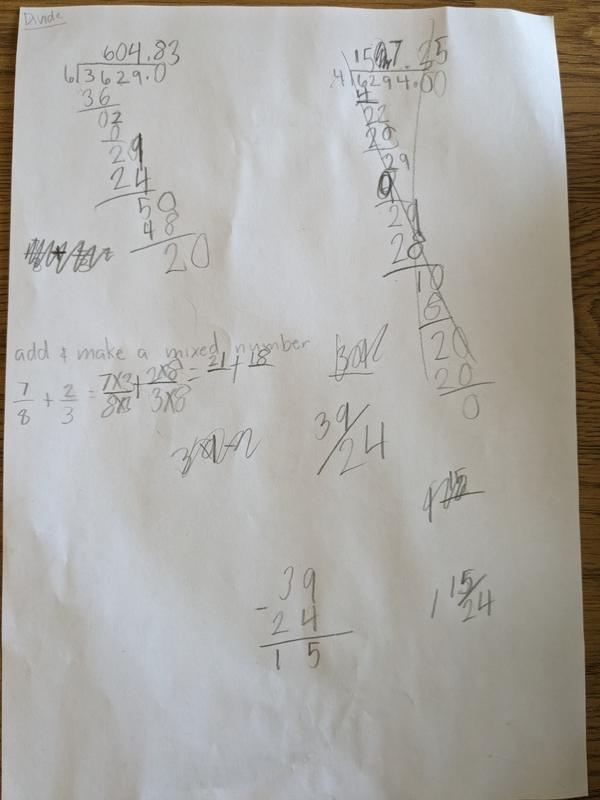 Divide
604.83
6 3629.0
36
02
0
29
24
50
48
20
4 6294.00
4
22
20
29
29
28
10
20
20
0
add & make a mixed number
7/8 + 2/3 = 7x3/8x3 + 2x8/3x8 = 21 + 18
39/24
39
- 24
15
1 15/24